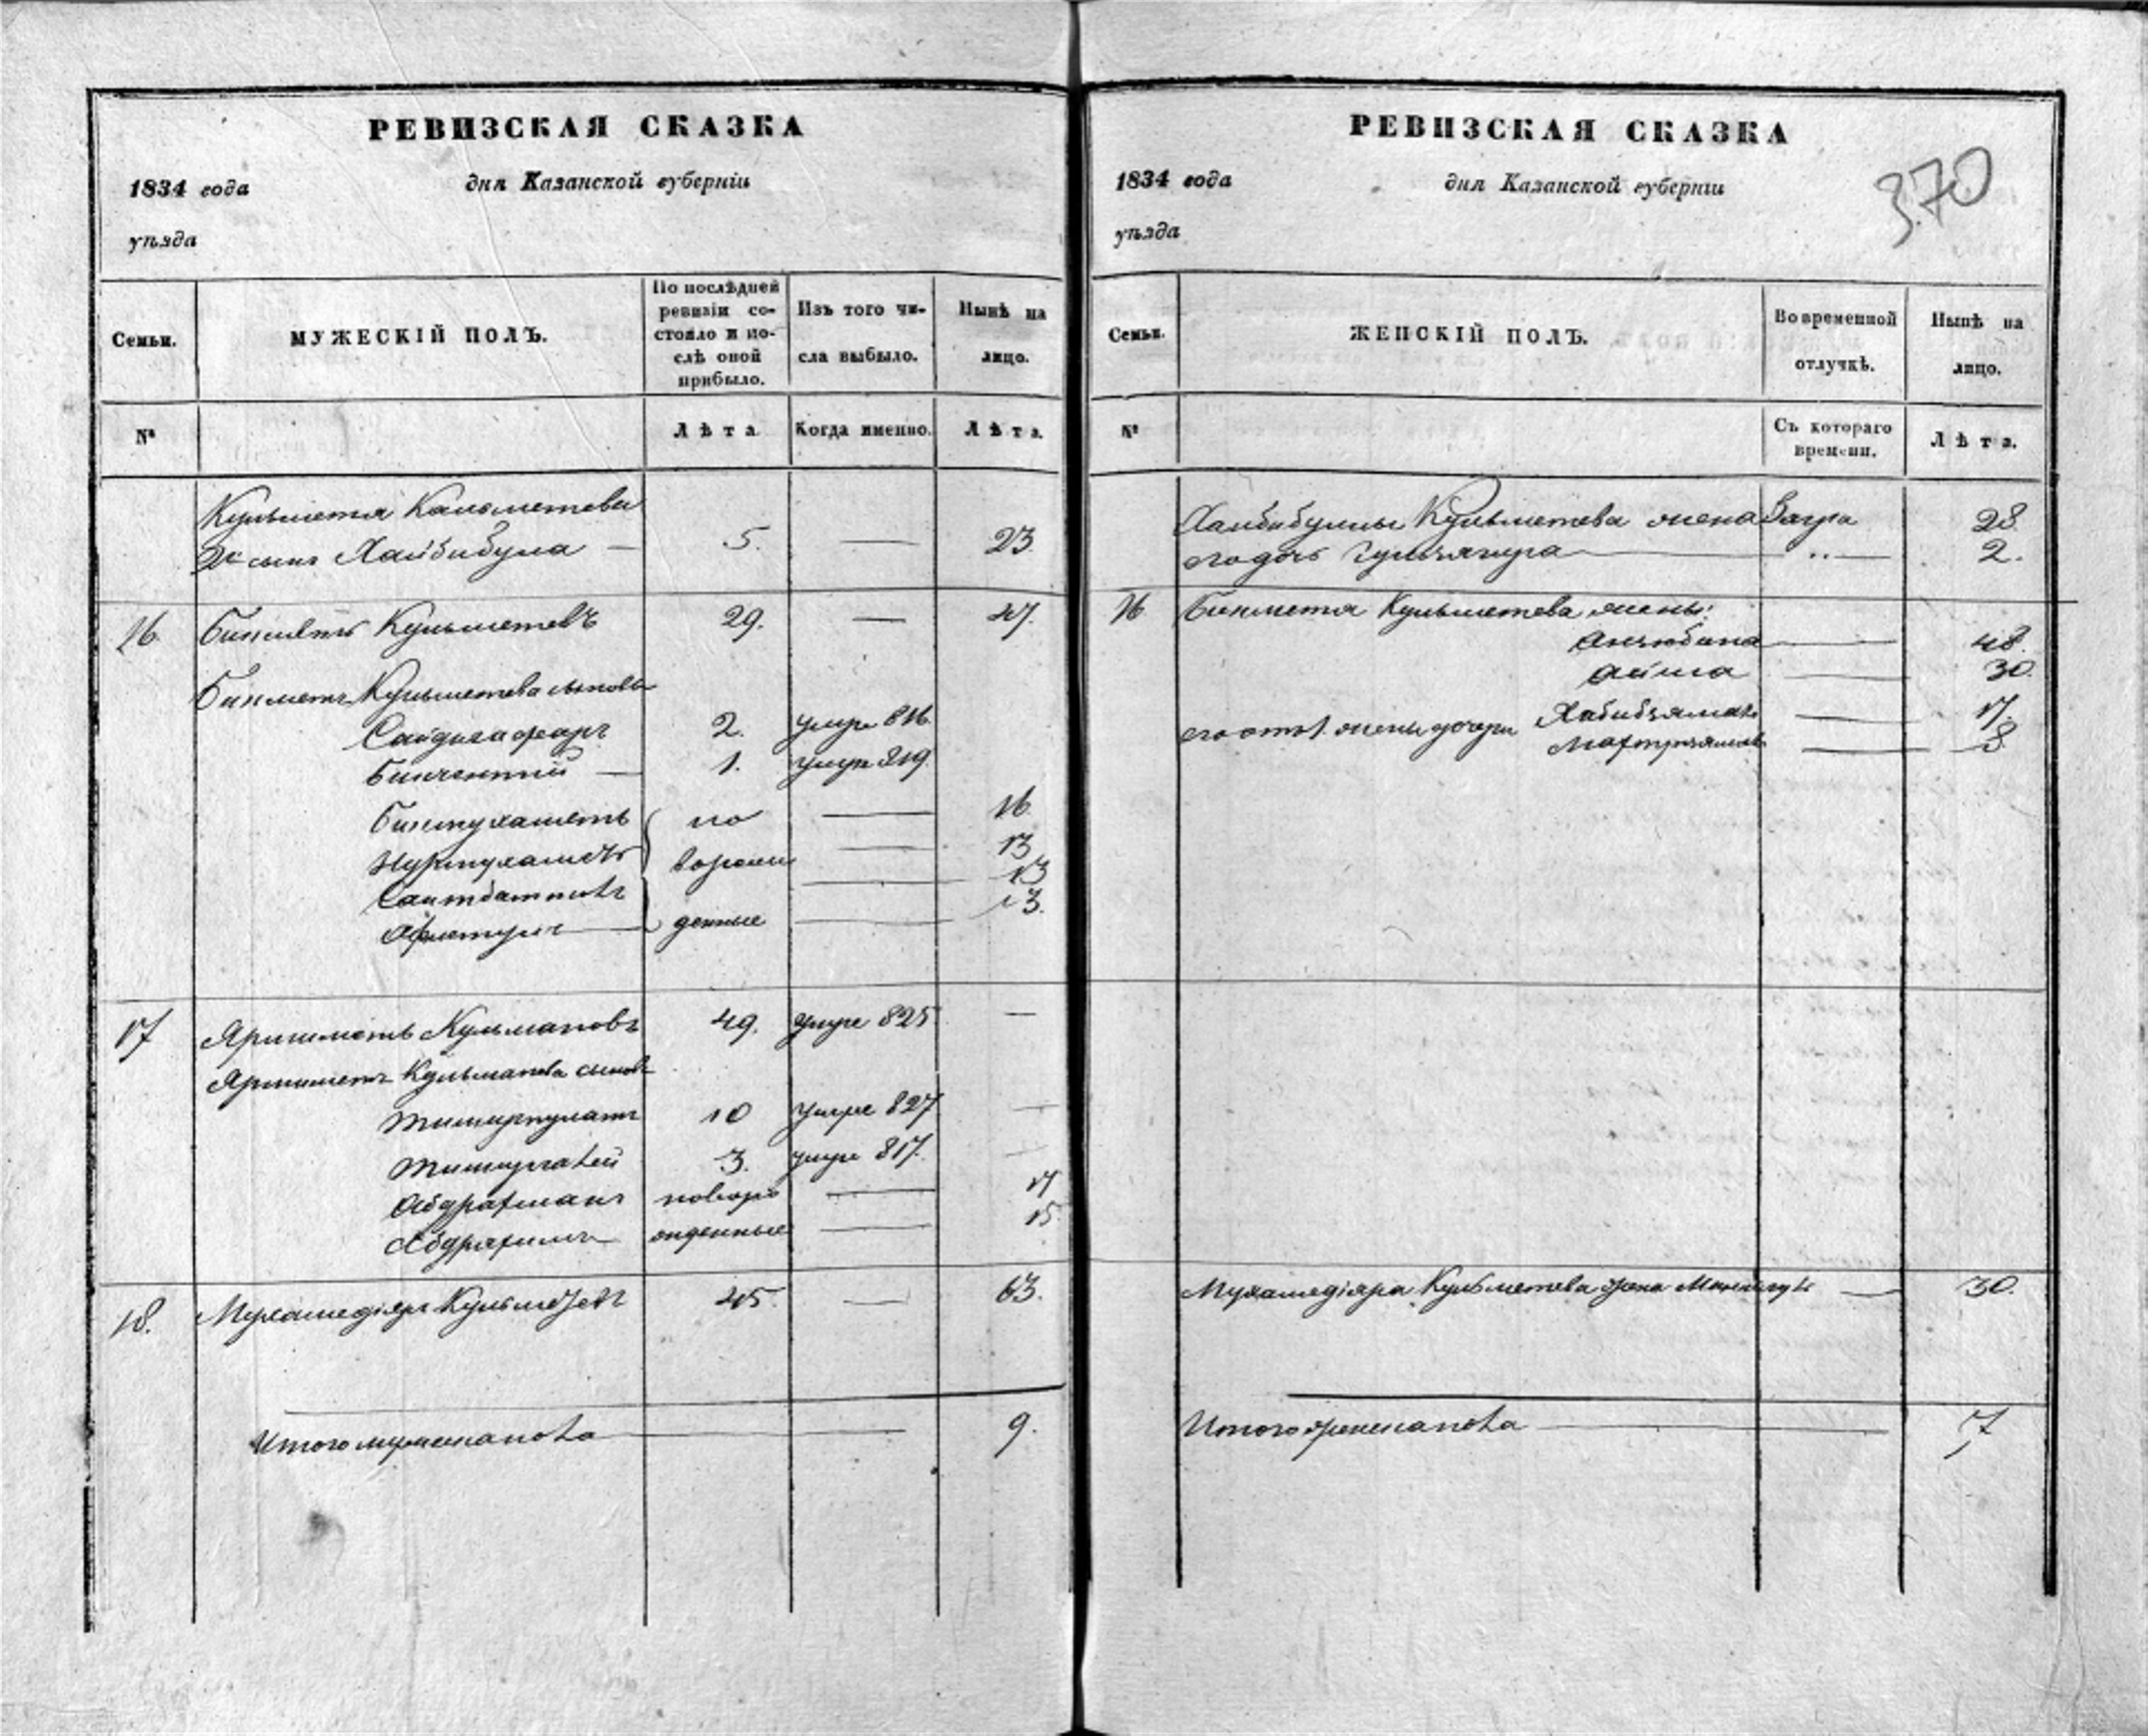 РЕВИЗСКАЯ СКАЗКА
1834 года
дня Казанской губерніи
уѣзда
Семьи.
МУЖЕСКІЙ ПОЛЪ.
По послѣдней
ревизіи со-
стояло и по-
слѣ оной
прибыло.
Изъ того чи-
сла выбыло.
Нынѣ на
лицо.
№
Лѣта
Когда именно.
Лѣта.
Кульметя Кальметева
2й сынъ Хайбибула — 5. — 23.
16. Бикметъ Кульметевъ 29. — 47.
Бикметя Кульметева сыновья
Сайдигафаръ 2. умре 816.
Бикчентий — 1. умре 819.
Бикмухаметь по — 16.
Нурмухаметъ ворож — 13
Саитбатталъ — 13
денные — 13.
17 Яришметь Кульматовъ 49. умре 825 —
Яришметя Кульматова сынов
Тимерпулатъ 10 умре 827 —
Тимергалей 3. умре 817. —
Абдрахманъ новоро — 17
Абдряхимъ жденные — 15
18. Мухамедіяръ Кульметевъ 45. — 63.
Итого мужеска пола — 9.
РЕВИЗСКАЯ СКАЗКА
370
1834 года
дня Казанской губерніи
уѣзда
Семьи.
ЖЕНСКІЙ ПОЛЪ.
Во временной
отлучкѣ.
Нынѣ на
лицо.
№
Съ котораго
времени.
Лѣта.
Хайбибулы Кульметева жена Загра 28.
его дочь — 2.
16 Бикметя Кульметева жены:
— 48.
Айша — 30.
его отъ 1. жены дочери Хабибзямалъ — 17.
— 8.
Мухамедіяра Кульметева жена — 30.
Итого женска пола — 7